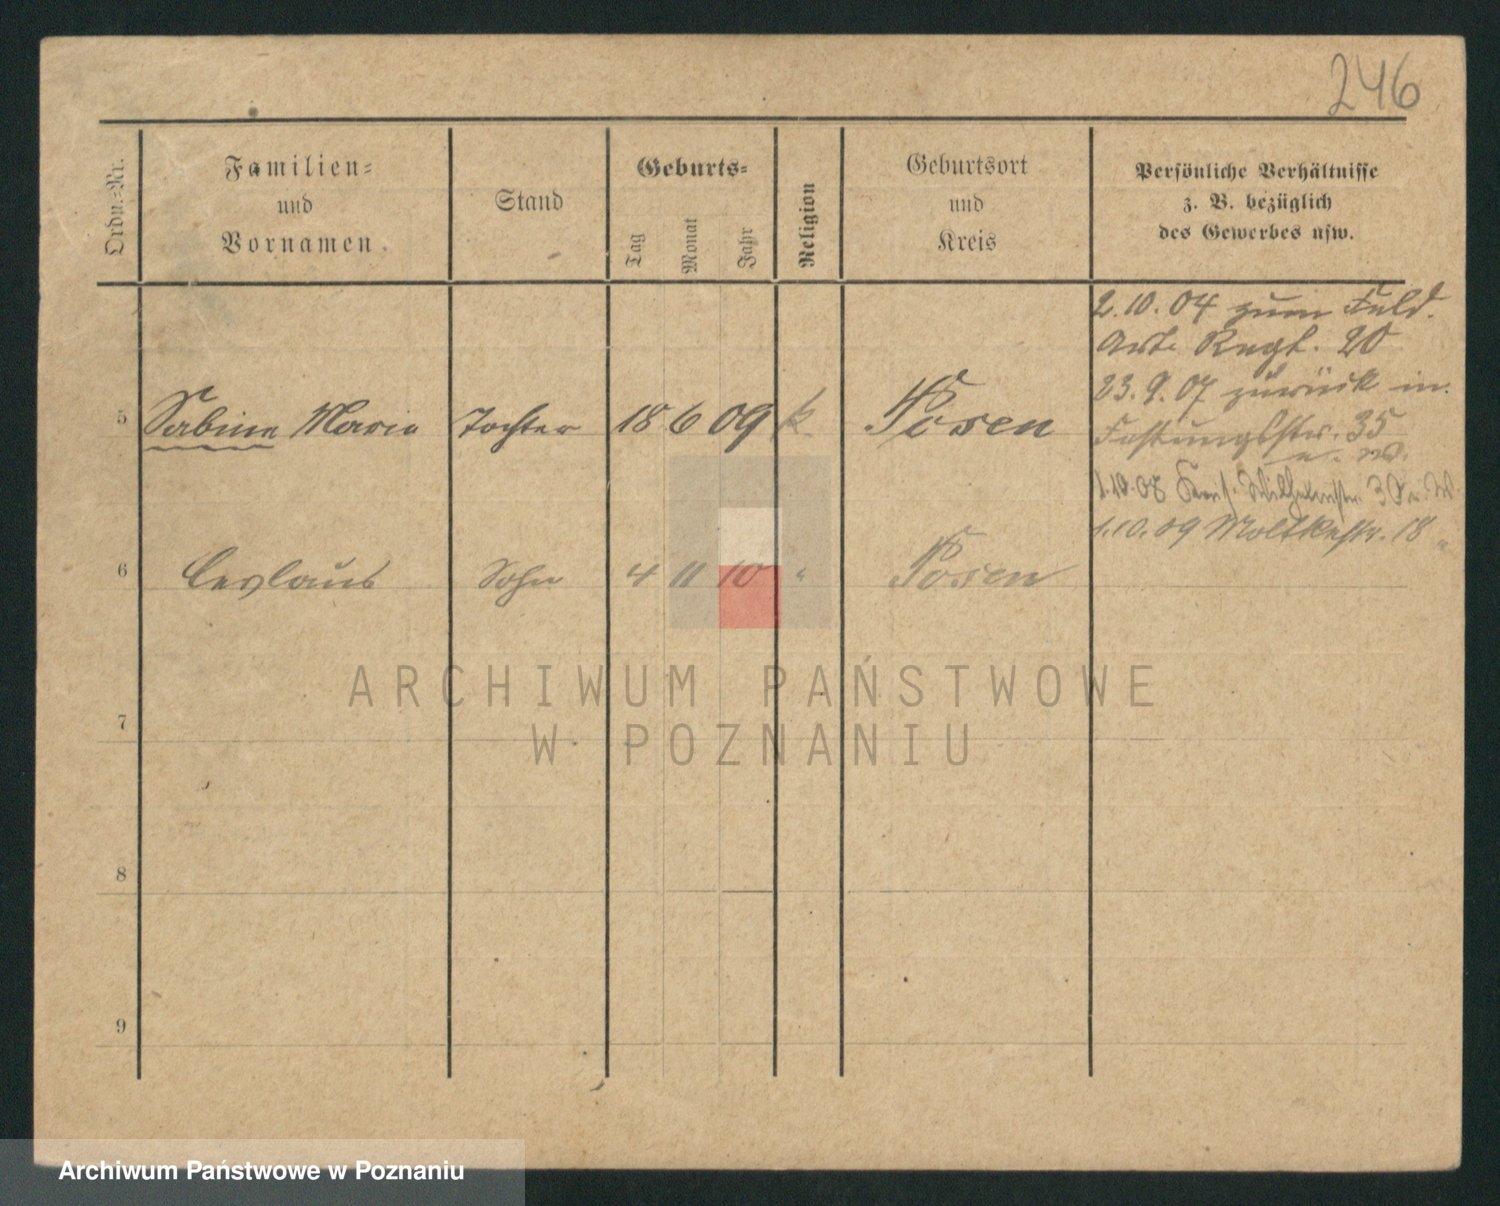 246
Ordn.-Nr.
Familien-
und
Vornamen.
Stand
Geburts-
Tag
Monat
Jahr
Religion
Geburtsort
und
Kreis
Persönliche Verhältnisse
z. B. bezüglich
des Gewerbes usw.
2.10.04 zum Feld.
Art. Regt. 20
5 Sabine Marie Tochter 18 6 09 k. Posen
23.9.07 zurück in.
Festungsstr. 35
1.10.08 Wilhelmstr. 30
1.10.09 Moltkestr. 18 "
6 Ceslaus Sohn 4 11 10 " Posen
ARCHIWUM PAŃSTWOWE
W POZNANIU
7
8
9
Archiwum Państwowe w Poznaniu